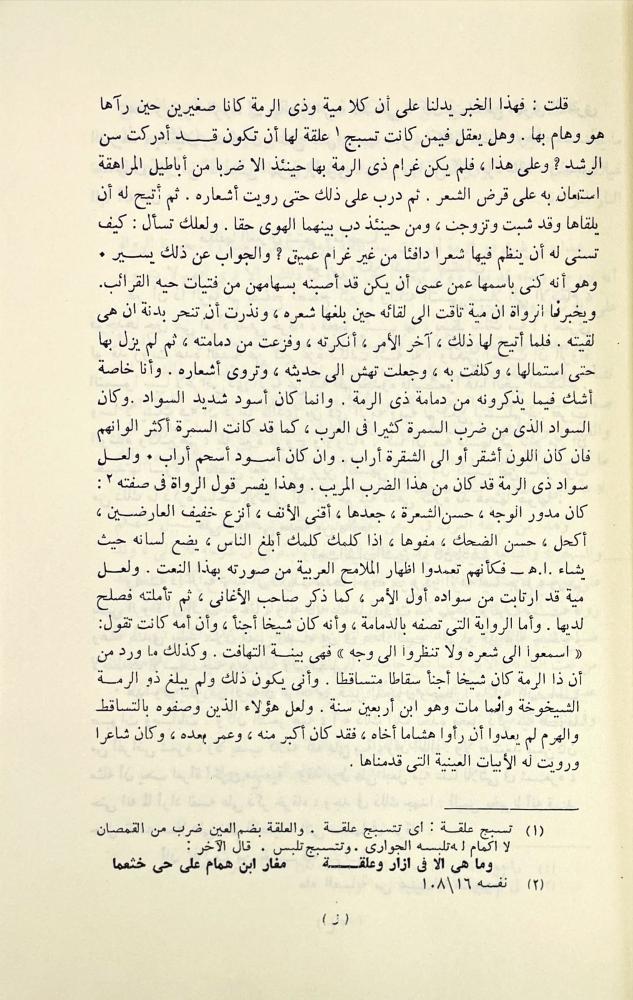 قلت : فهذا الخبر يدلنا على أن كلا مية وذى الرمة كانا صغيرين حين رآها
هو وهام بها . وهل يعقل فيمن كانت تسبج ١ علقة لها أن تكون قـــد أدركت سن
الرشد ? وعلى هذا ، فلم يكن غرام ذى الرمة بها حينئذ الا ضربا من أباطيل المراهقة
استعان به على قرض الشعر . ثم درب على ذلك حتى رويت أشعاره . ثم أتيح له أن
يلقاها وقد شبت وتزوجت ، ومن حينئذ دب بينهما الهوى حقا . ولعلك تسأل : كيف
تسنى له أن ينظم فيها شعرا دافئا من غير غرام عميق ? والجواب عن ذلك يســير .
وهو أنه كنى باسمها عمن عسى أن يكن قد أصبنه بسهامهن من فتيات حيه القرائب.
ويخبرنا الرواة ان مية تاقت الى لقائه حين بلغها شعره ، ونذرت أن تنحر بدنة ان هى
لقيته . فلما أتيح لها ذلك ، آخر الأمر ، أنكرته ، وفزعت من دمامته ، ثم لم يزل بها
حتى استمالها ، وكلفت به ، وجعلت تهش الى حديثه ، وتروى أشعاره . وأنا خاصة
أشك فيما يذكرونه من دمامة ذى الرمة . وانما كان أسود شديد السواد .وكان
السواد الذى من ضرب السمرة كثيرا فى العرب ، كما قد كانت السمرة أكثر الوانهم
فان كان اللون أشقر أو الى الشقرة أراب . وان كان أســود أسحم أراب . ولعــل
سواد ذى الرمة قد كان من هذا الضرب المريب . وهذا يفسر قول الرواة فى صفته ٢ :
كان مدور الوجه ، حسن الشعرة ، جعدها ، أقنى الأنف ، أنزع خفيف العارضــين ،
أكحل ، حسن الضحك ، مفوها ، اذا كلمك كلمك أبلغ الناس ، يضع لسانه حيث
يشاء .ا.هـ ــ فكأنهم تعمدوا اظهار الملامح العربية من صورته بهذا النعت . ولعــل
مية قد ارتابت من سواده أول الأمر ، كما ذكر صاحب الأغانى ، ثم تأملته فصلح
لديها . وأما الرواية التى تصفه بالدمامة ، وأنه كان شيخا أجنأ ، وأن أمه كانت تقول:
« اسمعوا الى شعره ولا تنظروا الى وجه » فهى بينــة التهافت . وكذلك ما ورد من
أن ذا الرمة كان شيخا أجنأ سقاطا متساقطا . وأنى يكون ذلك ولم يبلغ ذو الرمــة
الشيخوخة وانما مات وهو ابن أربعين سنة . ولعل هؤلاء الذين وصفوه بالتساقط
والهرم لم يعدوا أن رأوا هشاما أخاه ، فقد كان أكبر منه ، وعمر بعده ، وكان شاعرا
ورويت له الأبيات العينية التى قدمناها .
(١) تسبج علقة : اى تتسبج علقة . والعلقة بضم العين ضرب من القمصان
لا اكمام له تلبسه الجوارى . وتتسبج تلبس . قال الآخر :
وما هى الا فى ازار وعلقــــة مغار ابن همام على حى خثعما
(٢) نفسه ١٠٨\١٦